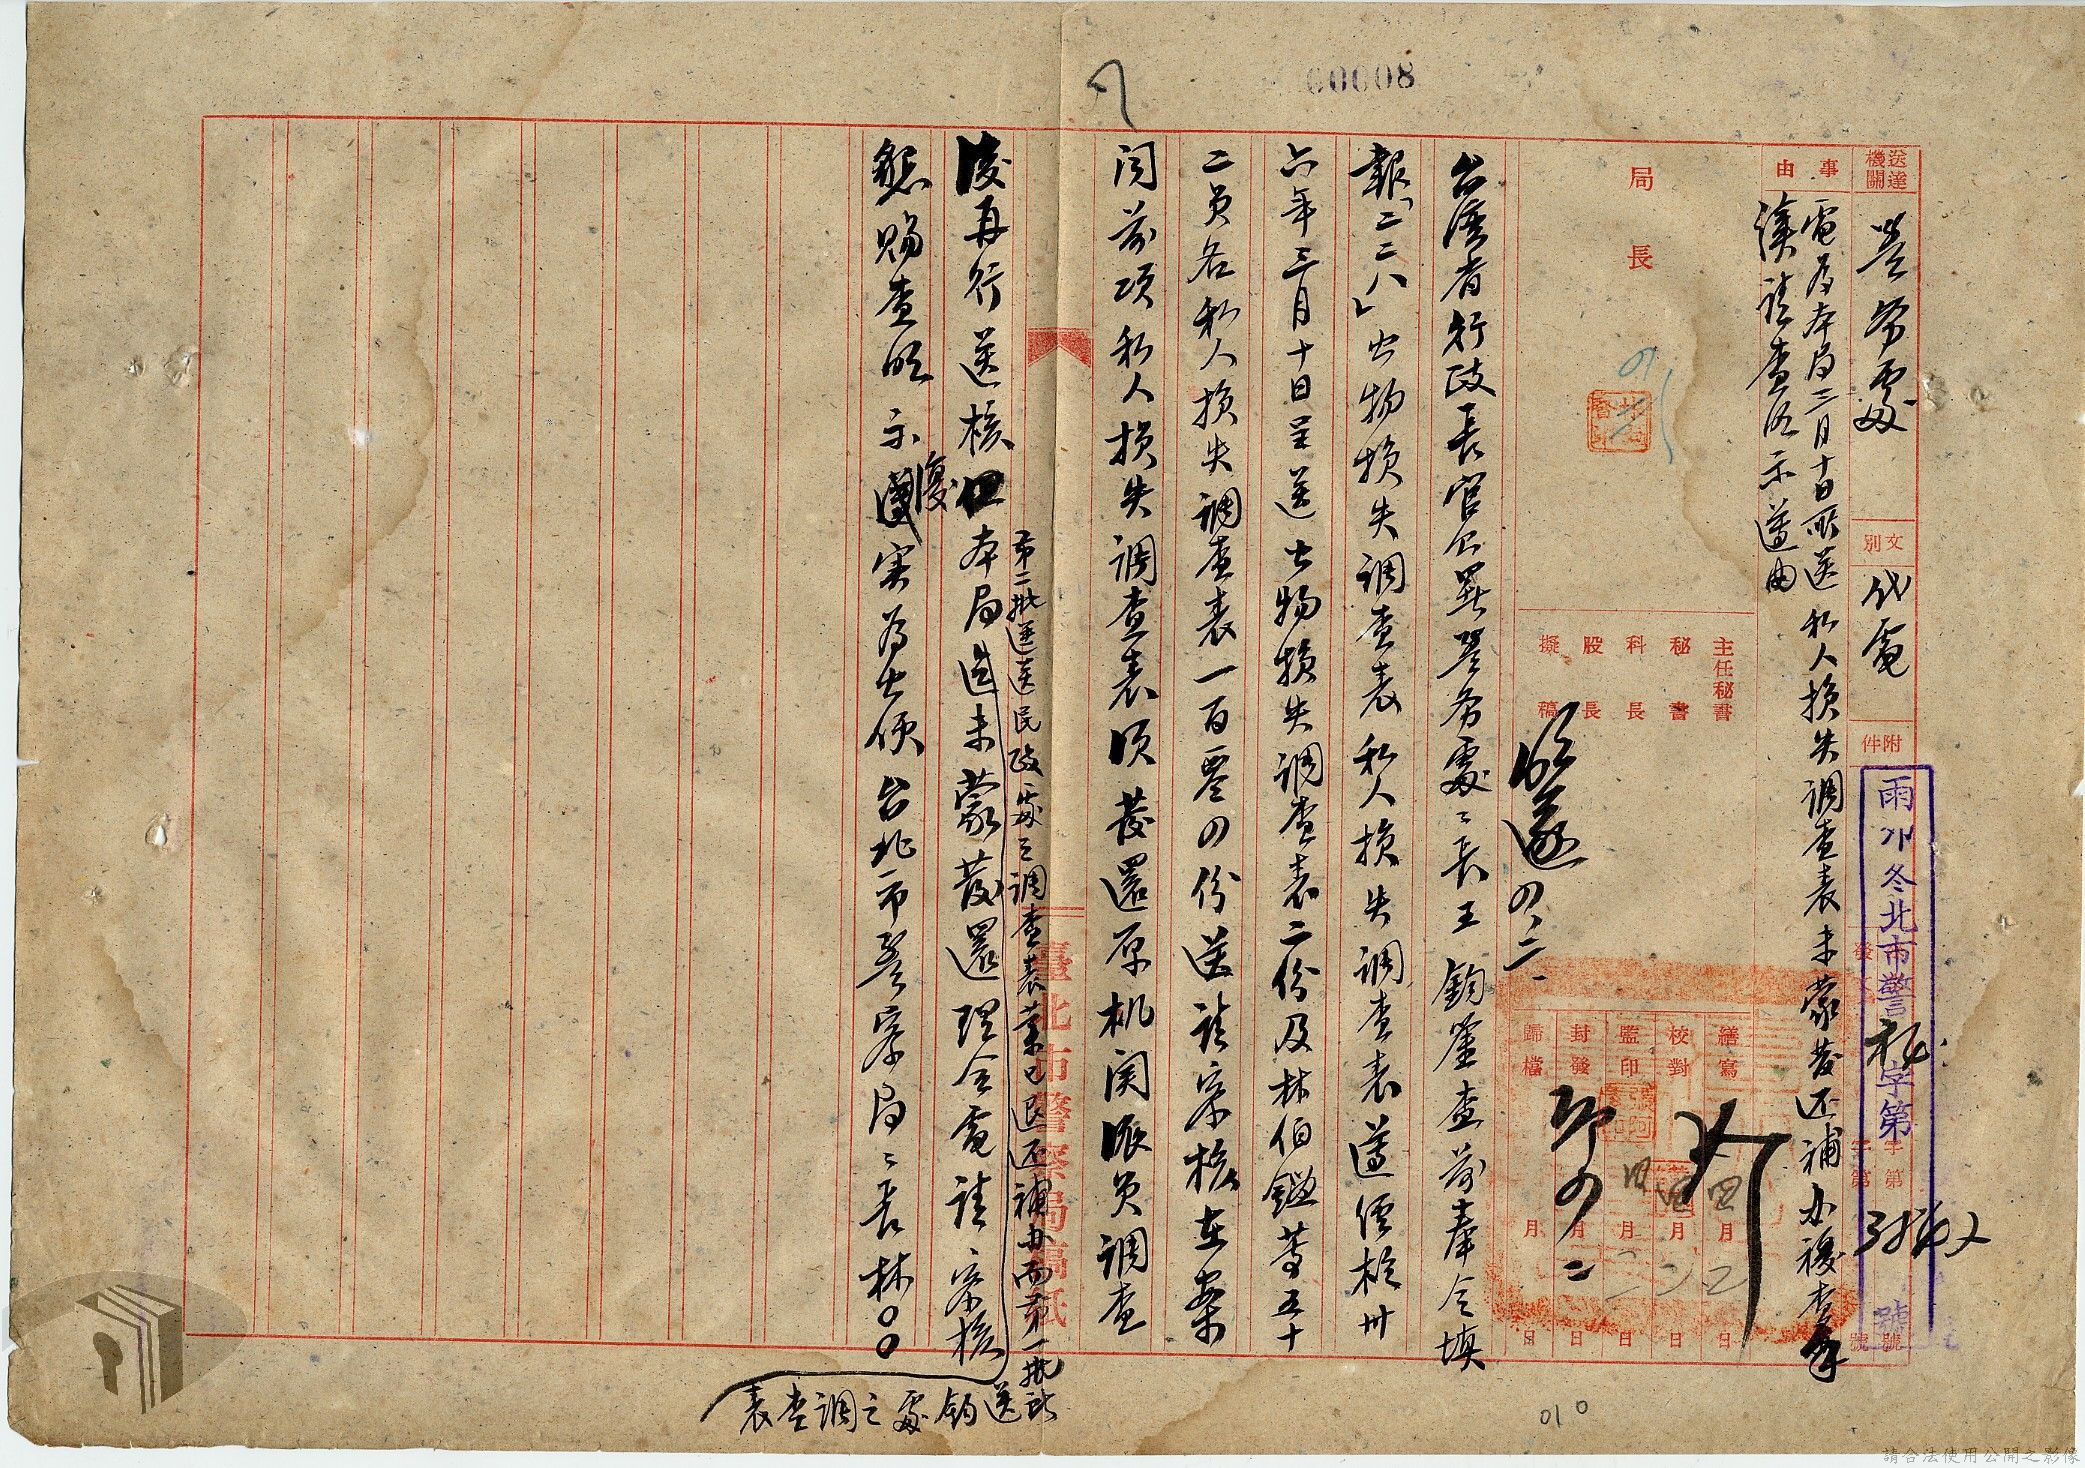 60008
送達機關
警务處
文別
代電
附件
雨卯冬北市警秘字第號
發
字第 號
事由
電為本局三月十日所送私人損失調查表未蒙發还補办複查
謹請查照示遵由
局長
主任秘書
秘書
科長
股長
擬稿
繕寫 月 日
校對 月 日
監印 月 日
封發 月 日
歸檔 月 日
台灣省行政長官公署警务處處長王鈞鑒查前奉令填
報「二二八」公物損失調查表私人損失調查表遵經於卅
六年三月十日呈送公物損失調查表二份及林伯鑑等五十
二員各私人損失調查表一百零四份送請察核在案
茲前項私人損失調查表須發還原机関派員調查
後再行送核但本局迄未蒙發還理合電請察核
第二批逕送民政處之調查表業已退还補办而第一批所
送鈞處之調查表
懇賜查明示復實為公便台北市警察局局長林○○
臺北市警察局稿紙
010
請合法使用公開之影像